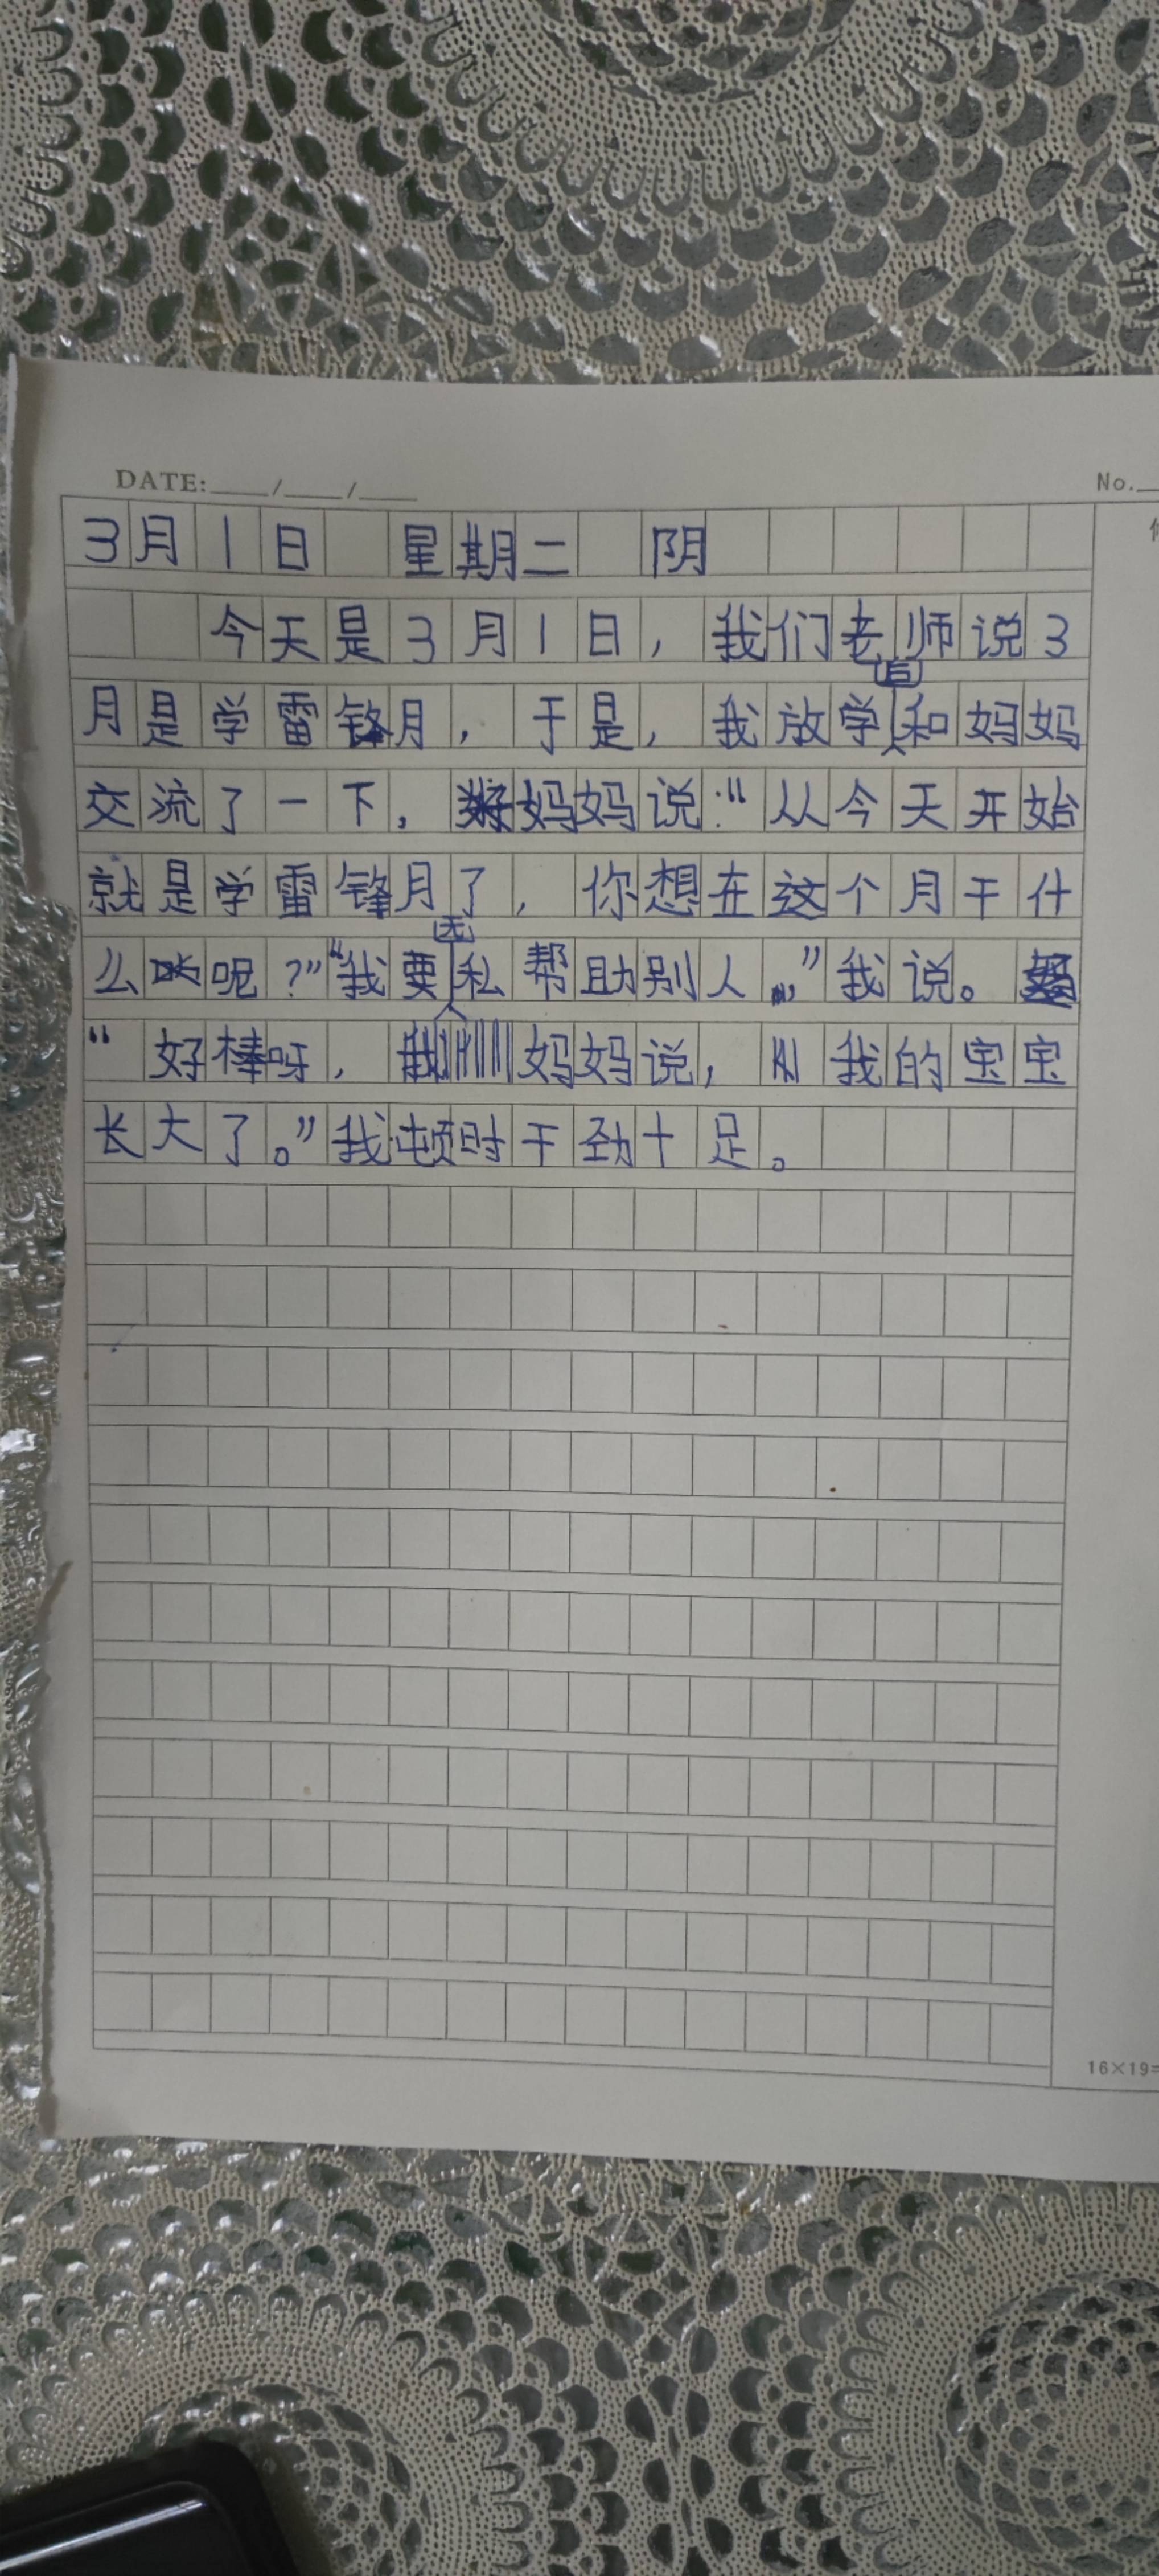 DATE: ___/___/___
No.
3月1日 星期二 阴
今天是3月1日，我们老师说3
月是学雷锋月，于是，我放学后和妈妈
交流了一下，妈妈说：“从今天开始
就是学雷锋月了，你想在这个月干什
么呢？”“我要无私帮助别人。”我说。
“好棒呀，妈妈说，“我的宝宝
长大了。”我顿时干劲十足。
16×19=